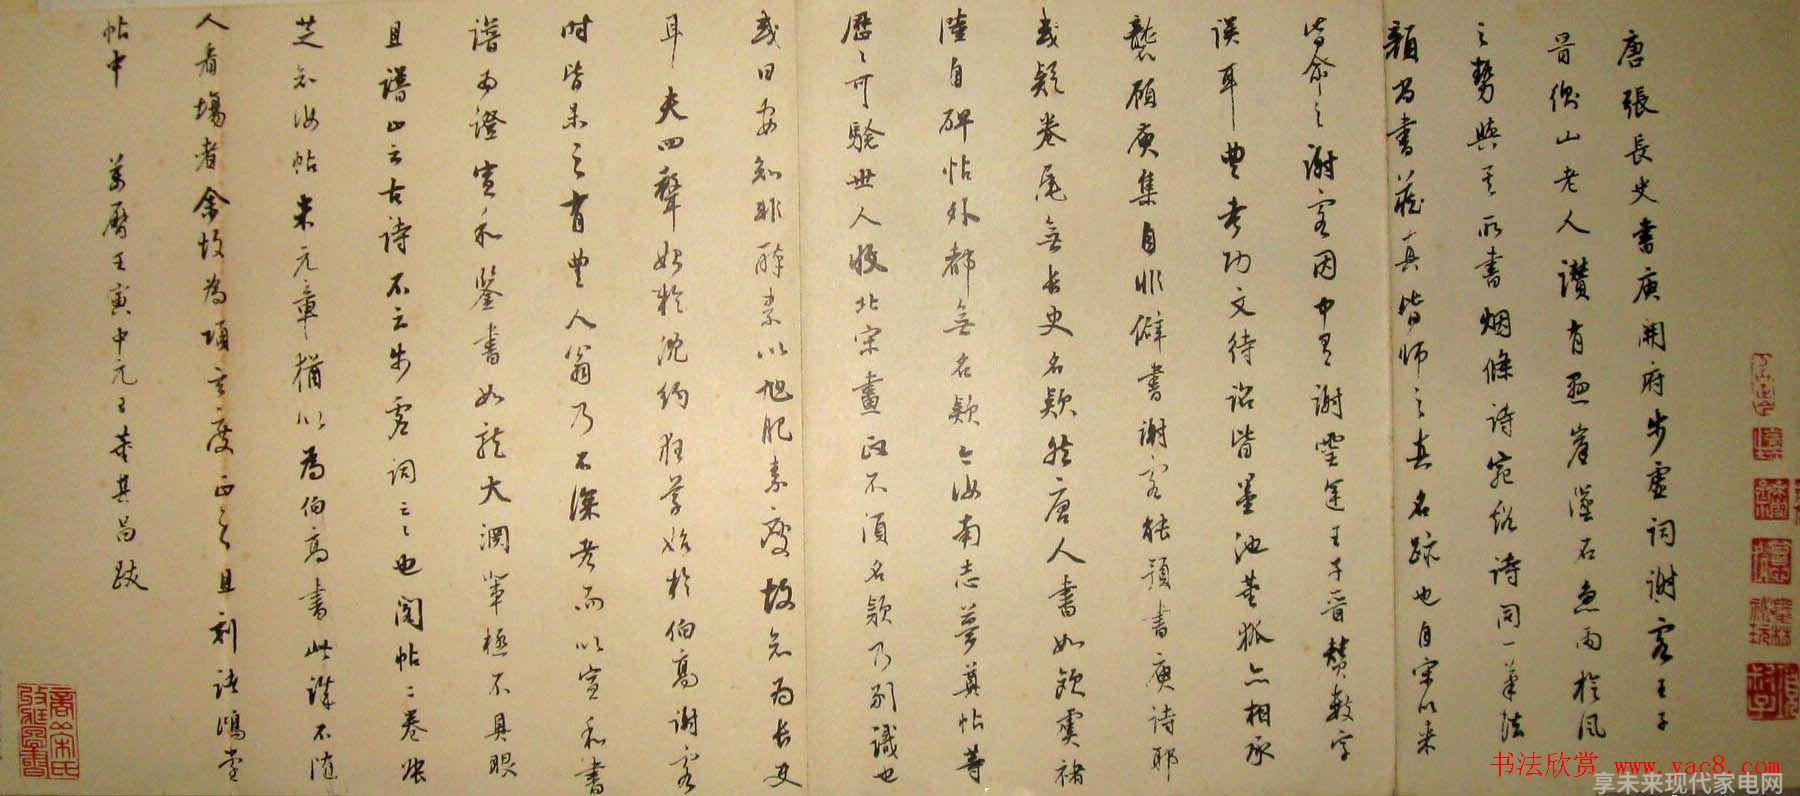 唐張長史書庾開府步虛詞謝客王子
晉衡山老人讚有懸崖墜石急雨旋風
之勢與其所書烟條詩宛谿詩同一筆法
顏尚書藏真皆師之真名跡也自宋以來
皆命之謝客因中有謝靈運王子晉贊數字
誤耳豐考功文待詔皆墨池董狐亦相承
襲顧庾集自非僻書謝客能預書庾詩耶
或疑卷尾無長史名款然唐人書如歐虞褚
陸自碑帖外都無名款今汝南志夢奠帖等
歷歷可驗世人收北宋畫政不須名款乃別識也
或曰安知非醉素以旭肥素瘦故知為長史
耳夫四聲始於沈約狂草始於伯高謝客
時皆未之有豐人翁乃不深考而以宣和書
譜為證宣和鑒書如龍大淵輩極不具眼
且譜止云古詩不云步虛詞云云也閣帖二卷張
芝知汝帖米元章猶以為伯高書此誰不隨
人看場者余故為項玄度正之且刻諸鴻堂
帖中　萬曆壬寅中元日董其昌跋
书法欣赏 www.yac8.com
享未来现代家电网